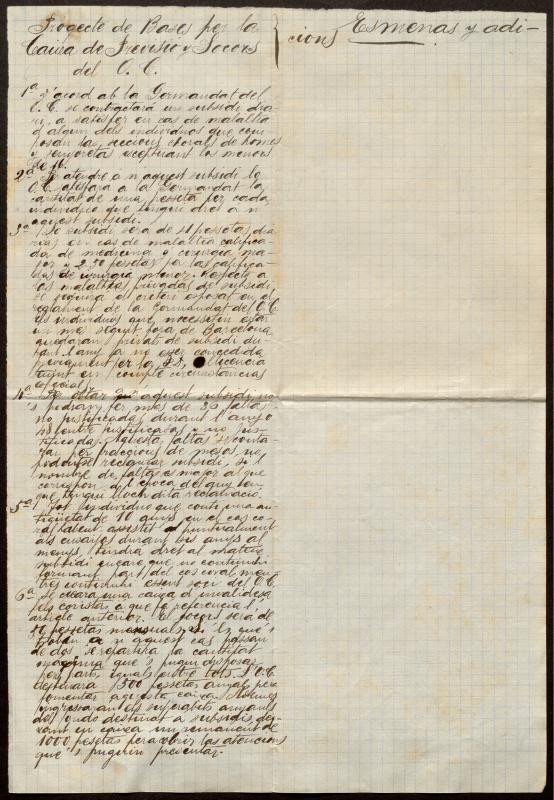 Progecte de Bases per la
Caixa de Previsió y Socors
del O. C.
Esmenas y adi-
cions
1ª D'acord ab la Germandat del
O. C. se contractará un subsidi dia-
ri, a satisfer en cas de malaltia
d'algun dels individuos que com-
posan las seccions chorals de homes
y senyoretas exceptuant los menors
de 16.
2ª Per atendre a n aquest subsidi lo
O. C. satisfara a la Germandat la
cantitat de una pesseta per cada
individuo que tingui dret a n
aquest subsidi.
3ª Lo subsidi será de 4 pessetas dia
rias en cas de malaltia califica-
da de medicina o cirurgia ma-
jor y 2,50 pesetas per las califica-
das de cirurgia menor. Respecte a
las malaltias privadas de subsidi
se seguirá el criteri exposat en el
reglament de la Germandat del O. C.
Els individuos que necessitin estar
un mes seguit fora de Barcelona
quedaran privats de subsidi du-
rant l'any ja no esser concedida
previament per la llicencia
tenint en compte circunstancias
especials.
4ª Per obtar a aquest subsidi no
s podran fer mes de 30 faltas
no justificadas durant l'any o
48 entre justificadas y no jus-
tificadas. Aquestas faltas se conta-
ran per fraccions de mesos no
podentse reclamar subsidi, si l
nombre de faltas es major al que
correspon a l'epoca del any en
que tingui lloch dita reclamació.
5ª Tot individuo que conti una an-
tiguetat de 10 anys en el cos co-
ral havent assistit puntualment
als ensaigs durant tres anys al
menys, tindra dret al mateix
subsidi encare que no continui
formant part del cos coral men-
tres continui essent soci del O. C.
6ª Se creara una caixa d'invalidesa
pels coristas a que fa referencia l'
article anterior. El socors será de
50 pessetas mensuals si ls que s
troban a n aquest cas passan
de dos se repartira la cantitat
maxima que s pugui disposar
per parts iguals entre tots. L'O. C.
destinara 1500 pessetas anyals pera
fomentar aquesta caixa. Ademes
ingressaran els superabits anyals
del fondo destinat a subsidis, dei-
xant en caixa un romanent de
1000 pesetas pera cobrir las atencions
que s puguin presentar.